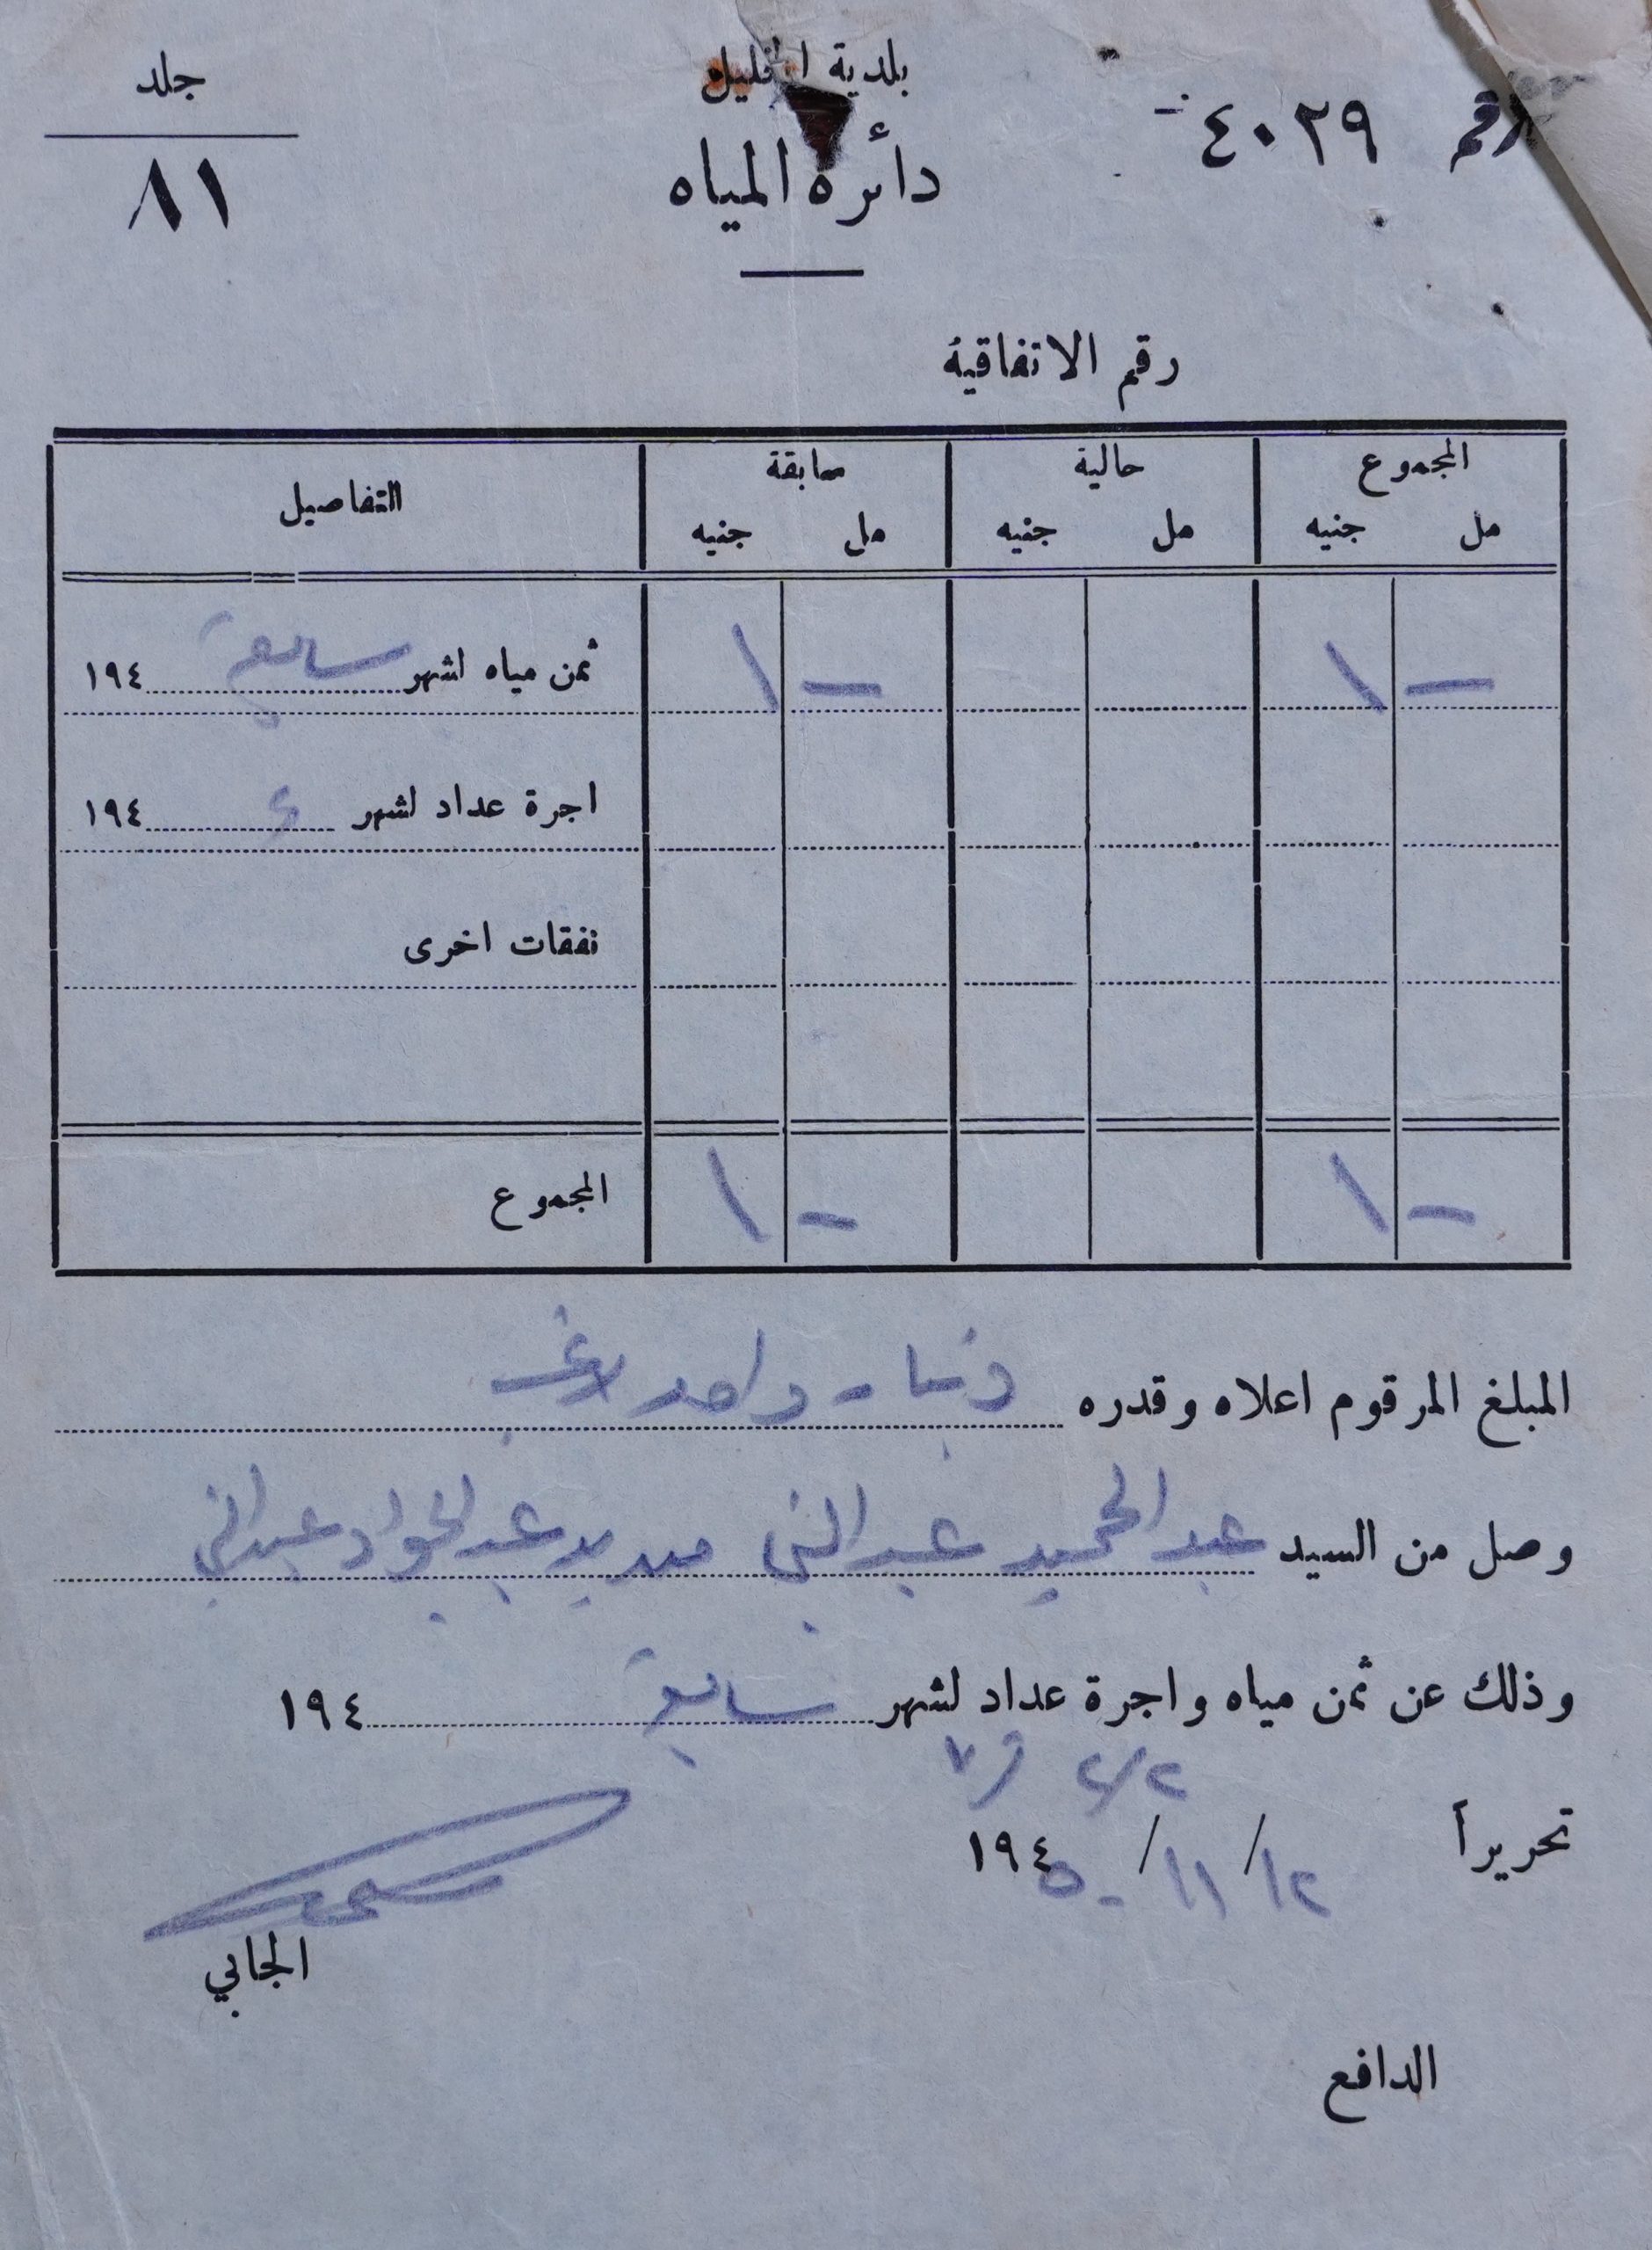 رقم ٤٠٢٩
بلدية الخليل
جلد
٨١
دائرة المياه
رقم الاتفاقية
المجموع حالية سابقة التفاصيل
مل جنيه مل جنيه مل جنيه
ثمن مياه لشهر سابقة ١٩٤ ١ - ١ -
اجرة عداد لشهر ١٩٤
نفقات اخرى
المجموع ١ - ١ -
المبلغ المرقوم اعلاه وقدره دينار واحد لاغير
وصل من السيد عبد الحميد عبد النبي عبد الجواد عبد النبي
وذلك عن ثمن مياه واجرة عداد لشهر سابقة ١٩٤
تحريراً ١٢ / ١١ / ١٩٤ ٥٠
الجابي
الدافع